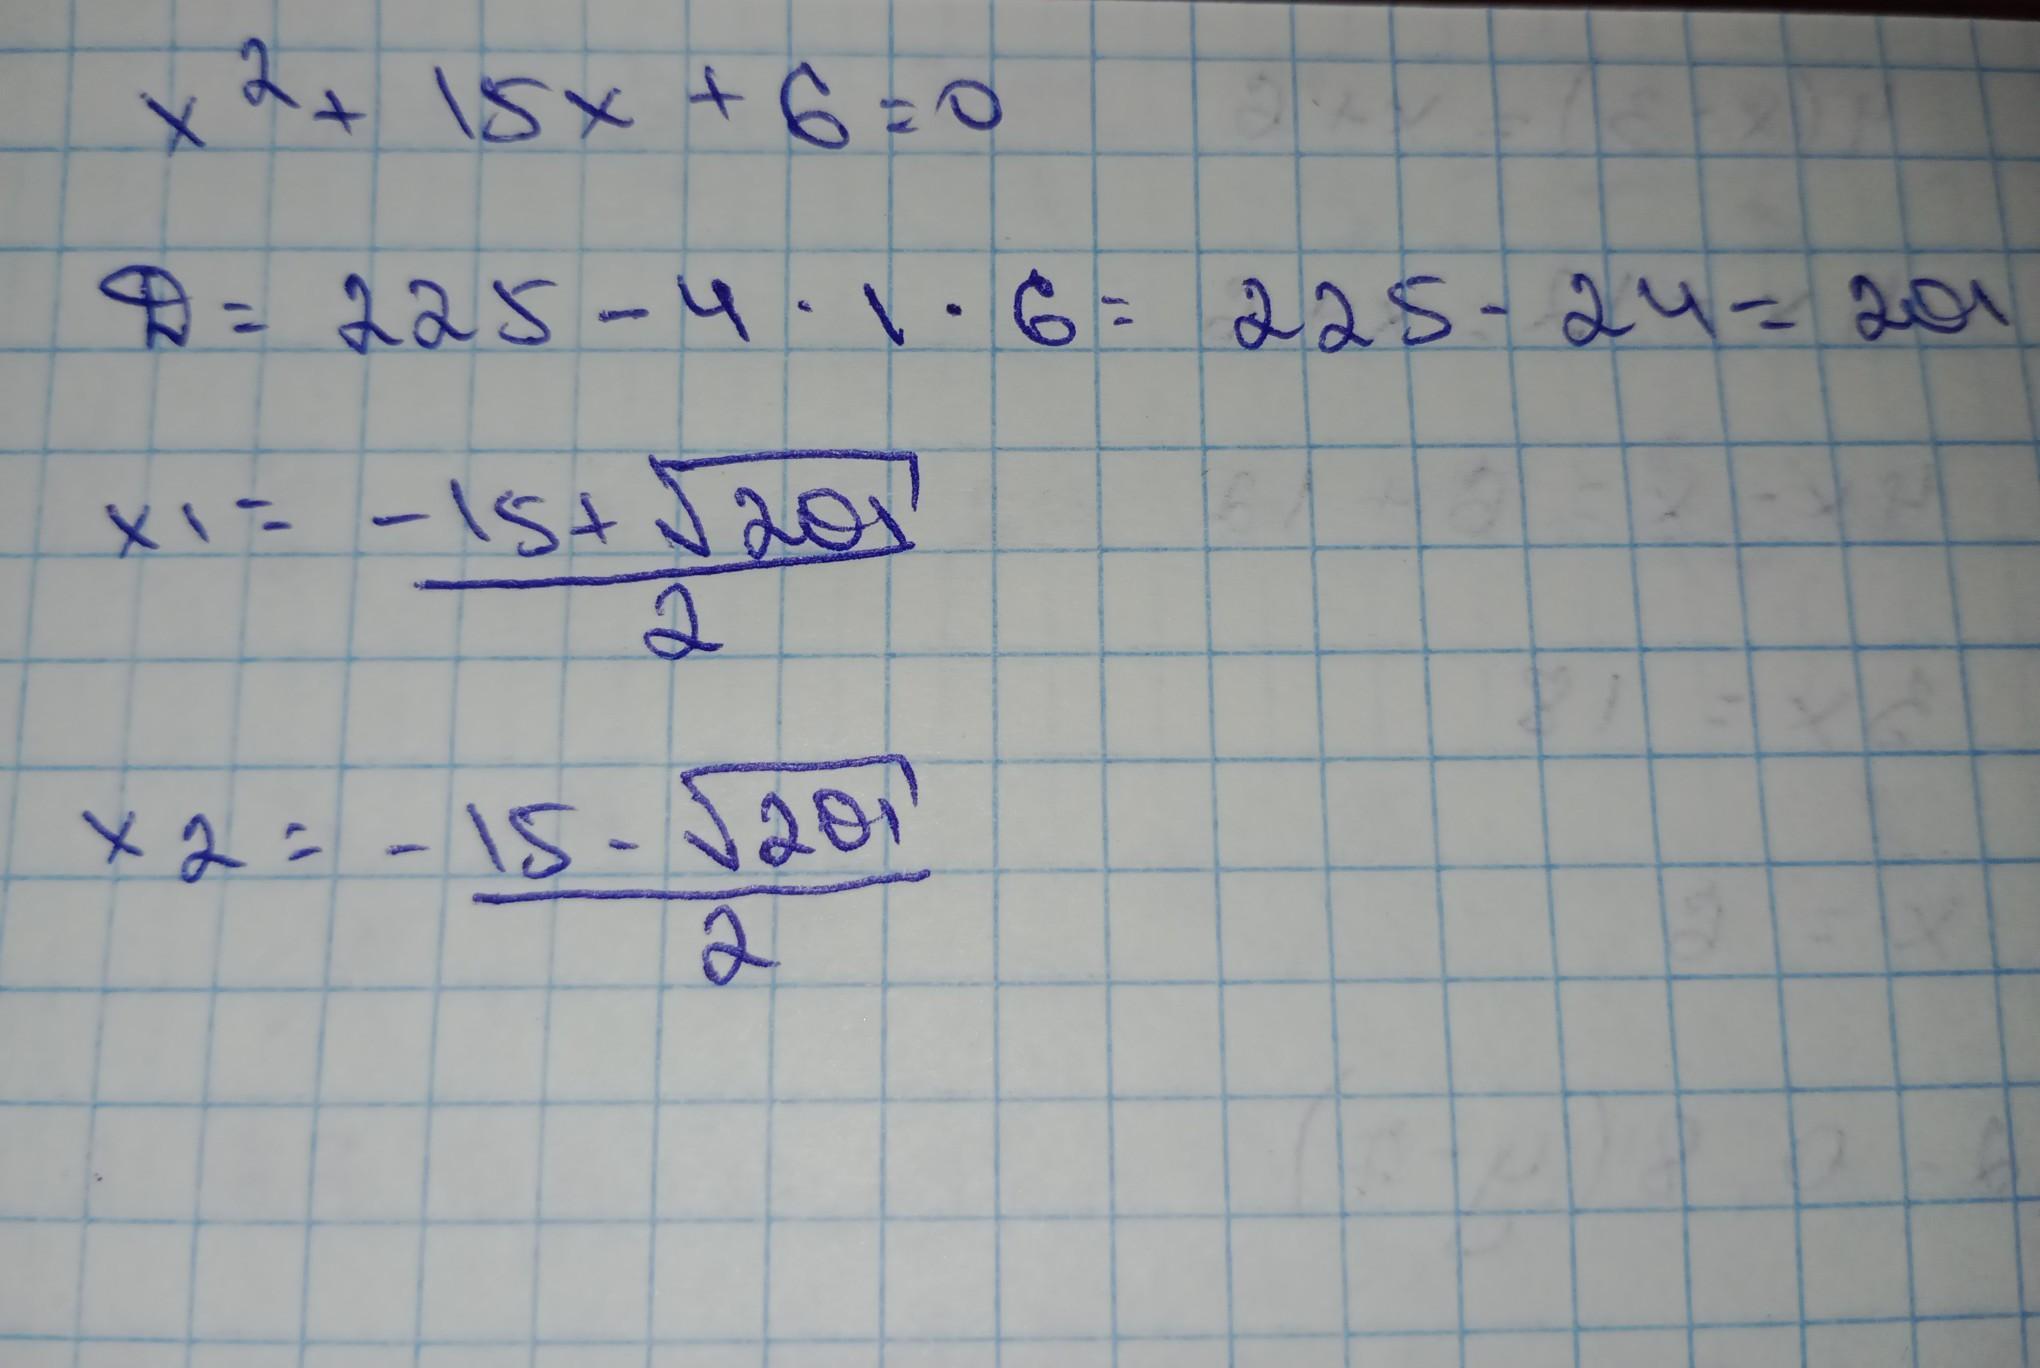 x² + 15x + 6 = 0
D = 225 - 4 · 1 · 6 = 225 - 24 = 201
x1 = -15 + √201
2
x2 = -15 - √201
2